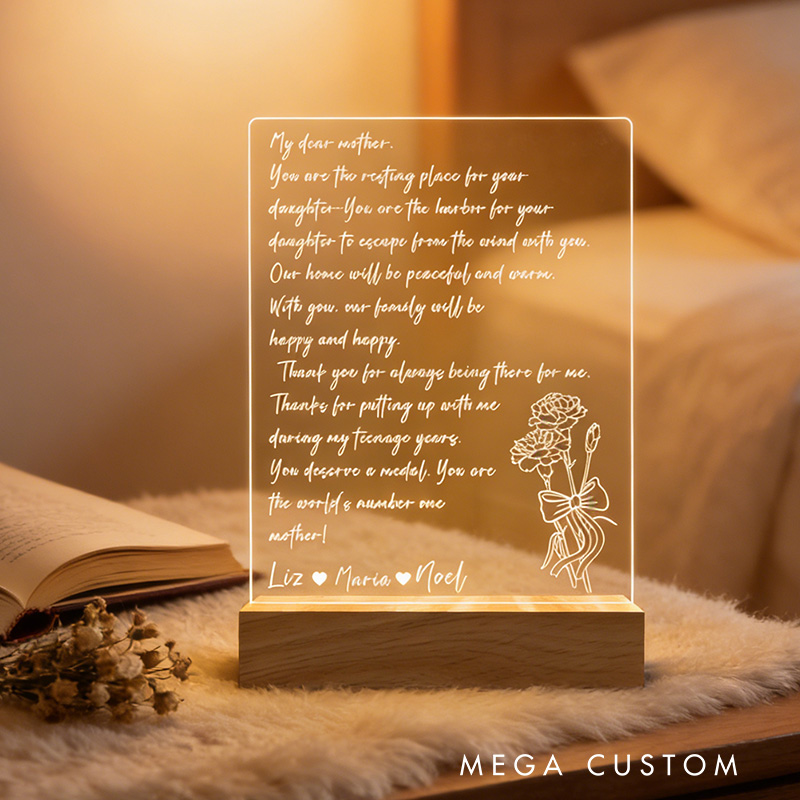 My dear mother.
You are the resting place for your
daughter-You are the harbor for your
daughter to escape from the wind with you.
Our home will be peaceful and warm.
With you, our family will be
happy and happy.
Thank you for always being there for me.
Thanks for putting up with me
during my teenage years.
You deserve a medal. You are
the world's number one
mother!
Liz ♥ Maria ♥ Noel
MEGA CUSTOM